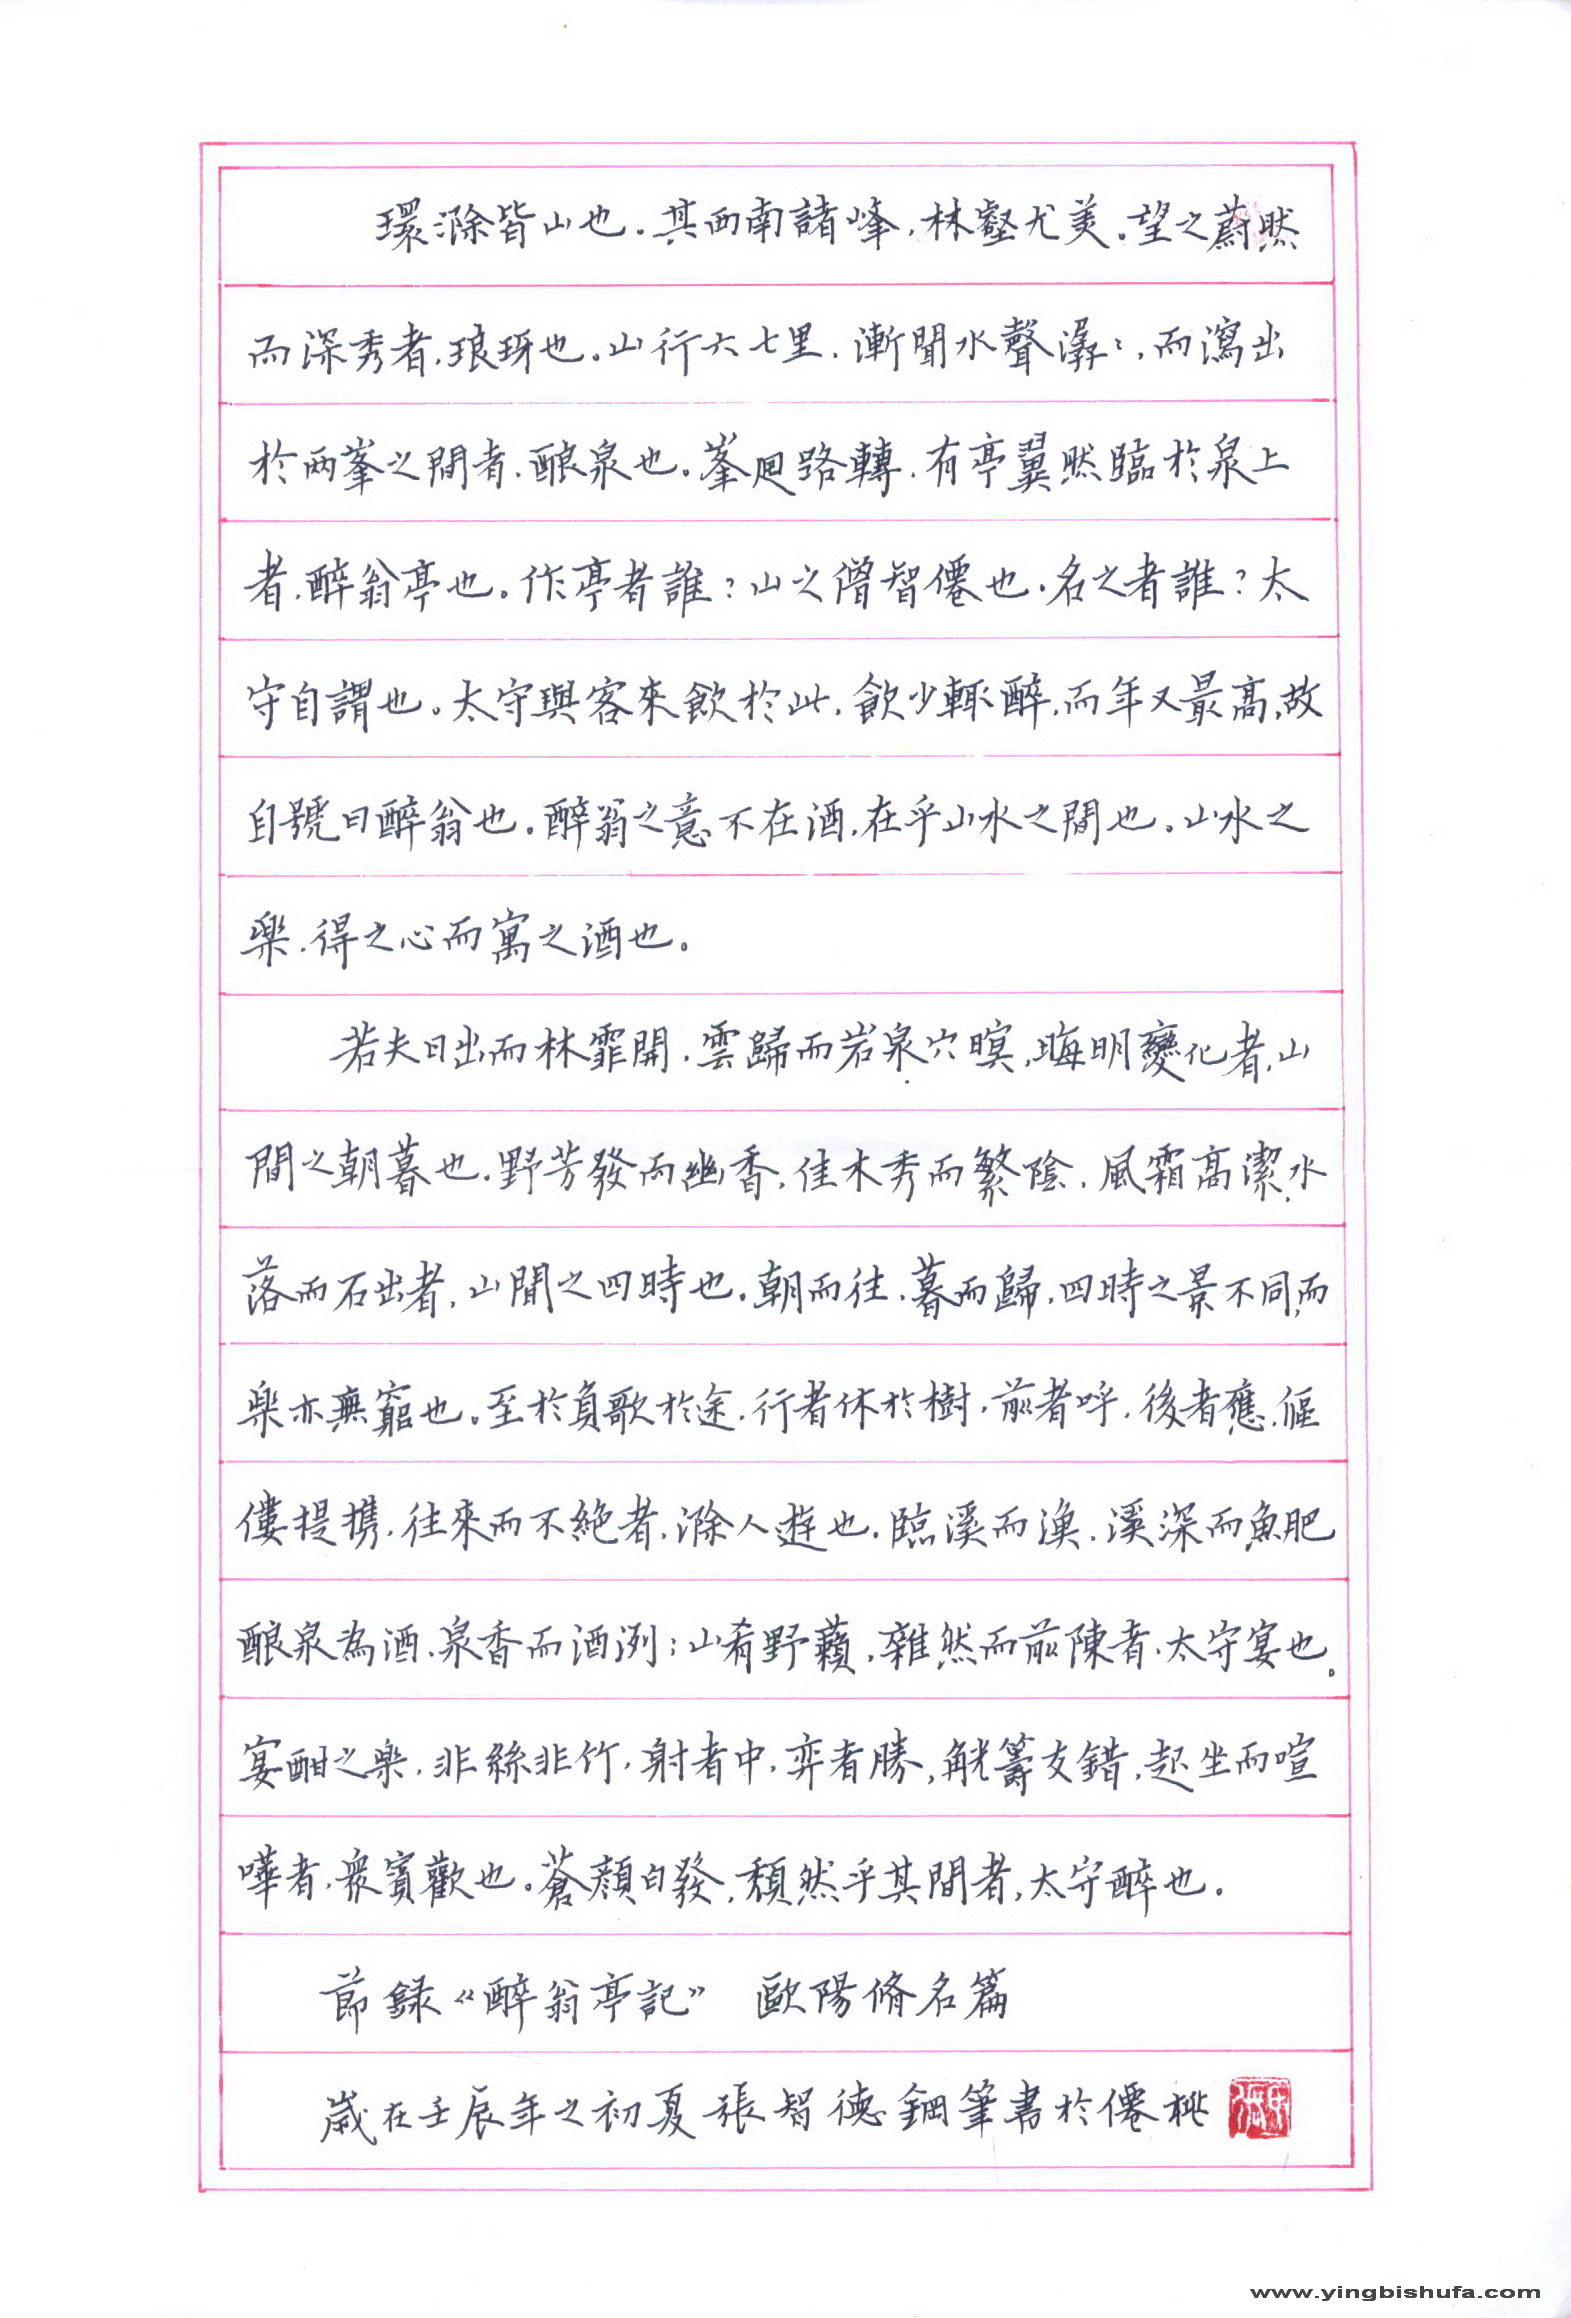 環滁皆山也.其西南諸峰,林壑尤美。望之蔚然
而深秀者,琅玡也。山行六七里,漸聞水聲潺:,而瀉出
於两峯之間者.酿泉也。峯迴路轉.有亭翼然臨於泉上
者,醉翁亭也。作亭者誰?山之僧智僊也.名之者誰?太
守自謂也。太守與客來飲於此,飲少輒醉,而年又最高,故
自號曰醉翁也。醉翁之意不在酒,在乎山水之間也。山水之
樂.得之心而寓之酒也。
若夫日出而林霏開.雲歸而岩泉穴暝,晦明變化者,山
間之朝暮也.野芳發而幽香,佳木秀而繁陰,風霜高潔,水
落而石出者,山間之四時也.朝而往,暮而歸,四時之景不同,而
樂亦無窮也。至於負歌於途,行者休於樹,前者呼,後者應,傴
僂提携,往來而不絶者,滁人遊也.臨溪而漁.溪深而魚肥
酿泉為酒.泉香而酒洌;山肴野蔌,雜然而前陳者,太守宴也。
宴酣之樂,非絲非竹,射者中,弈者勝,觥籌交錯,起坐而喧
嘩者,衆賓歡也。蒼顔白發,頹然乎其間者,太守醉也。
節録《醉翁亭記》 歐陽脩名篇
歲在壬辰年之初夏張智德鋼筆書於僊桃
www.yingbishufa.com